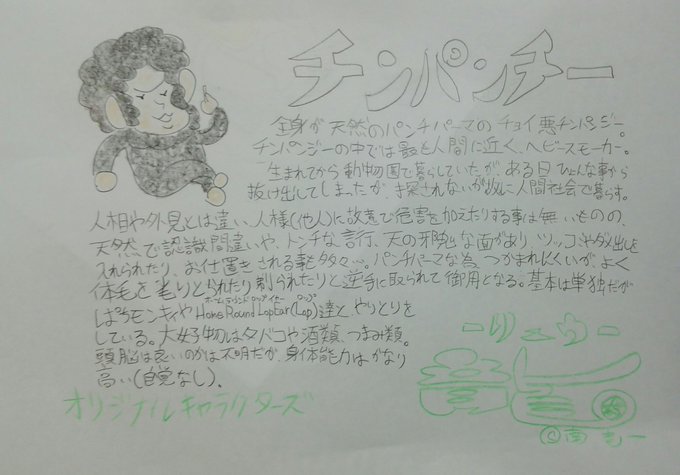 チンパンチー
全身が天然のパンチパーマのチョイ悪チンパンジー。
チンパンジーの中では最も人間に近く、ヘビースモーカー。
生まれてから動物園で暮らしていたが、ある日ひょんな事から
抜け出してしまったが、探されないが故に人間社会で暮らす。
人相や外見とは違い、人様(他人)に故意で危害を加えたりする事は無いものの、
天然で認識間違いや、トンチな言行、天の邪鬼な面があり、ツッコミやダメ出しを
入れられたり、お仕置きされる事も多々…。パンチパーマな為、つかまれにくいが、よく
体毛を毛りとられたり剃られたりと逆手に取られて御用となる。基本は単独だが
ホームラウンドロップイヤー ロップ
ぱちモンキィやHome Round Lop Ear(Lop)達とやりとりを
している。大好物はタバコや酒類、つまみ類。
頭脳は良いのかは不明だが、身体能力はかなり
高い(自覚なし)。
オリジナルキャラクターズ